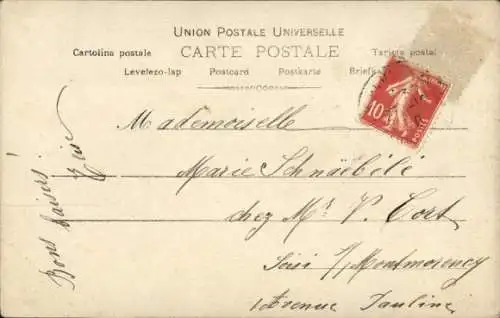 UNION POSTALE UNIVERSELLE
CARTE POSTALE
Cartolina postale
Tarjeta postal
Levelezo-lap Postcard Postkarte
10
POSTES
Mademoiselle
Marie Schnaëbélé
chez Mr V. Cort
Soisi s/ Montmorency
Avenue Pauline
Bons baisers!